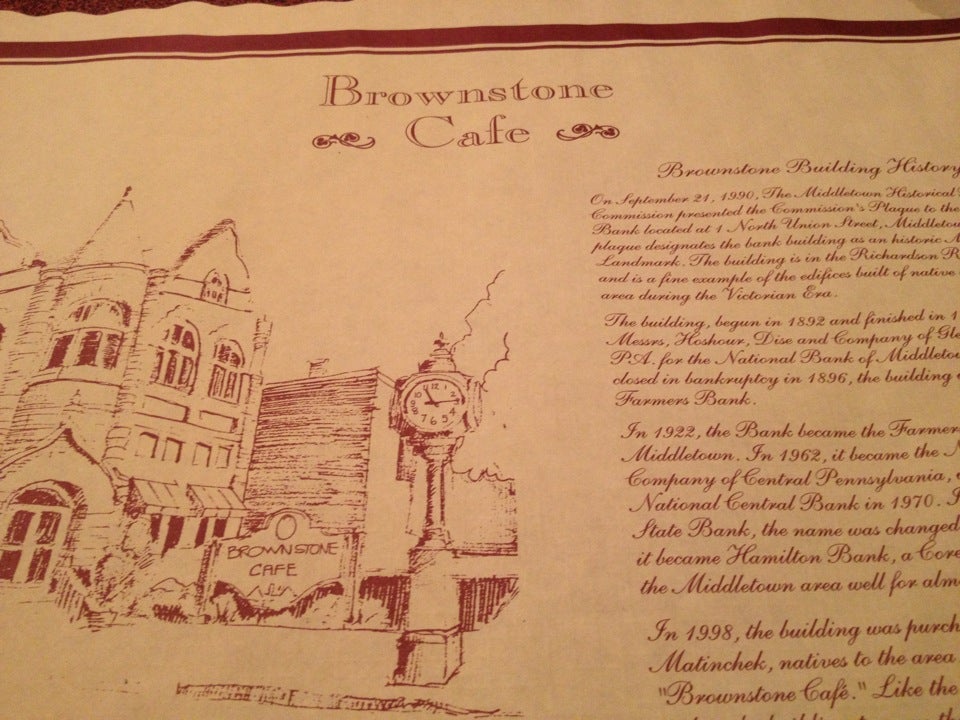 Brownstone
Cafe
Brownstone Building History
On September 21, 1990, The Middletown Historical
Commission presented the Commission's Plaque to the
Bank located at 1 North Union Street,
plaque designates the bank building as an historic
Landmark. The building is in the Richardson
and is a fine example of the edifices built of native
area during the Victorian Era.
The building, begun in 1892 and finished in
Messrs, Hoshour, Dise and Company of
P.A. for the National Bank of
closed in bankruptcy in 1896, the building
Farmers Bank.
In 1922, the Bank became the
Middletown. In 1962, it became the
Company of Central Pennsylvania,
National Central Bank in 1970.
State Bank, the name was changed
it became Hamilton Bank, a
the Middletown area well for
In 1998, the building was
Matinchek, natives to the area
"Brownstone Café." Like the
BROWNSTONE
CAFE